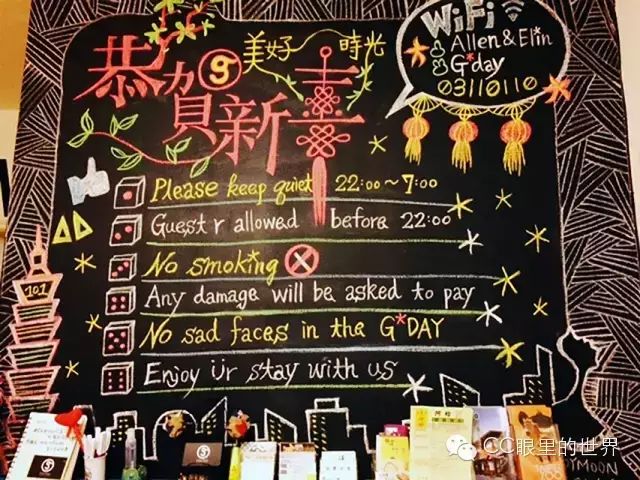 恭賀新喜
g 美好時光
WiFi
Allen & Elin
G*day
03110110
Please keep quiet 22:00~7:00
Guest r allowed before 22:00
No smoking
Any damage will be asked to pay
No sad faces in the G*DAY
Enjoy Ur stay with us
101
CC眼里的世界